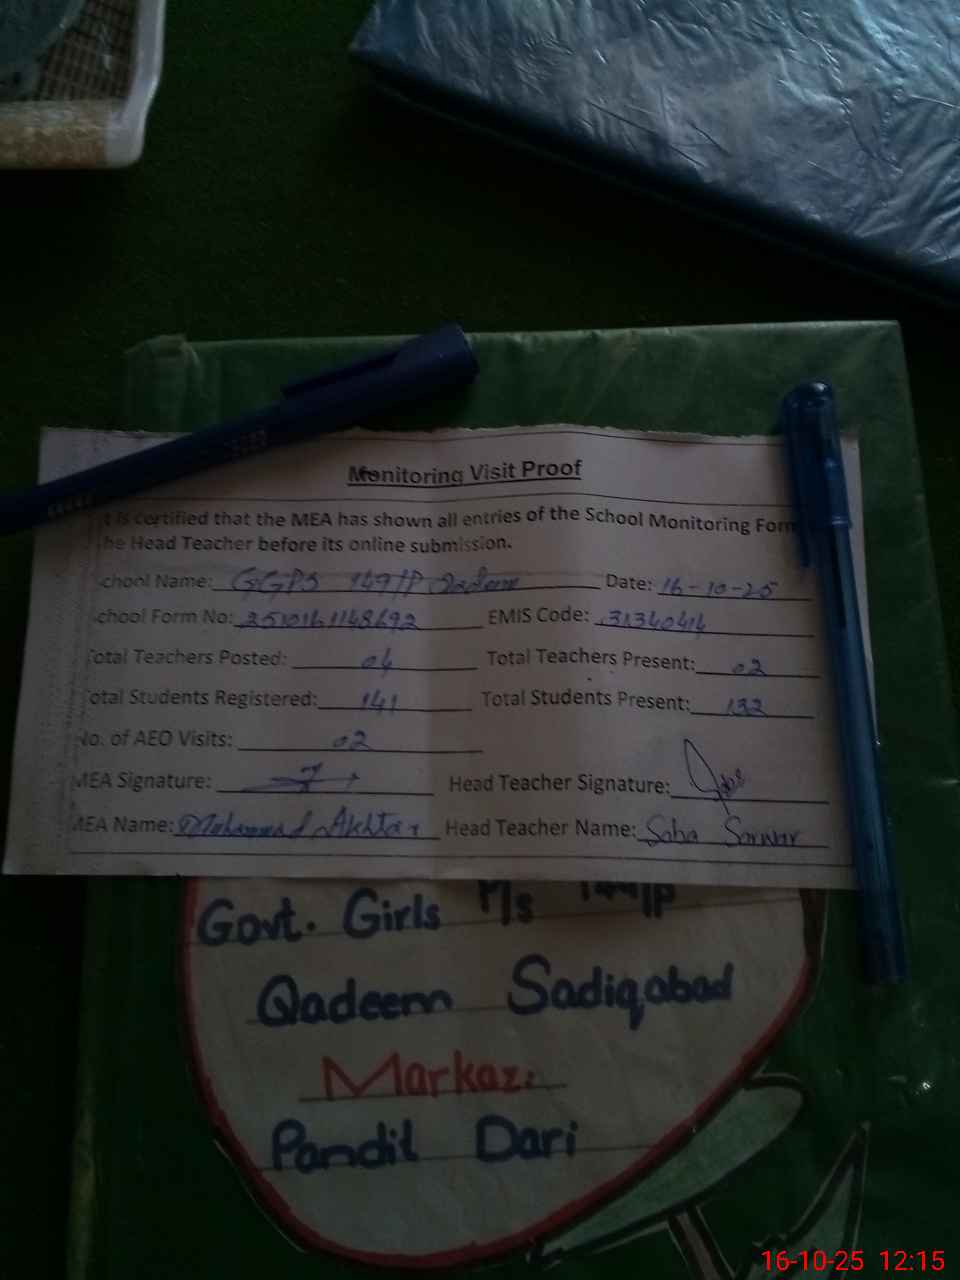 Monitoring Visit Proof
t is certified that the MEA has shown all entries of the School Monitoring Form
he Head Teacher before its online submission.
chool Name: GGPS 149/P Qadeem Date: 16-10-25
chool Form No: 2510161148692 EMIS Code: 31340414
Total Teachers Posted: 04 Total Teachers Present: 02
otal Students Registered: 141 Total Students Present: 132
No. of AEO Visits: 02
MEA Signature: Head Teacher Signature:
MEA Name: Muhammad Akhtar Head Teacher Name: Saba Sarwar
Govt. Girls P/s
Qadeem Sadiqabad
Markaz:
Pandit Dari
16-10-25 12:15